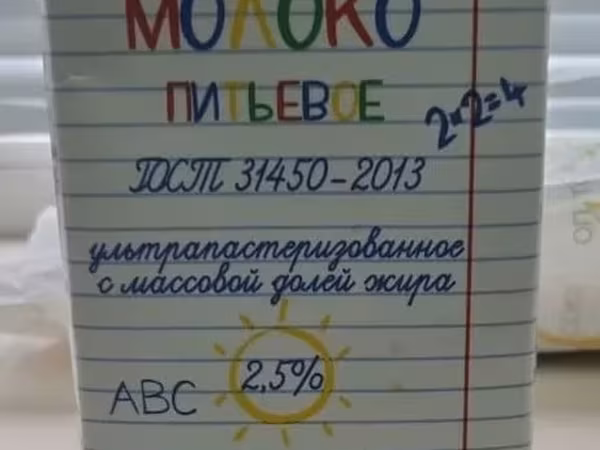 МОЛОКО
ПИТЬЕВОЕ
2×2=4
ГОСТ 31450-2013
ультрапастеризованное
с массовой долей жира
2,5%
ABC